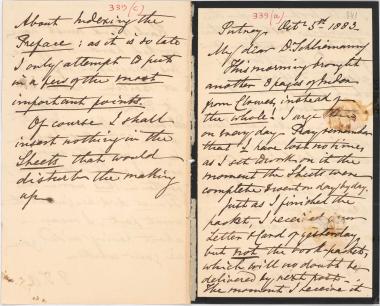 339(c)
About Indexing the
Preface; as it is so late
I only attempt to put
in a few of the most
important points.
Of course I shall
insert nothing in the
Sheets that would
disturb the making
up
339(a)
341
Putney. Oct 5th 1883.
My dear Dr Schliemann
This morning brought
another 8 pages of Index
from Clowes, instead of
the whole! I urge them
on every day. Pray remember
that I have lost no time,
as I set to work on it the
moment the Sheets were
complete & went on day by day.
Just as I finished the
packet, I received your
Letter & Card of yesterday
but not the book-packet,
which will no doubt be
delivered by next post.
The moment I receive it